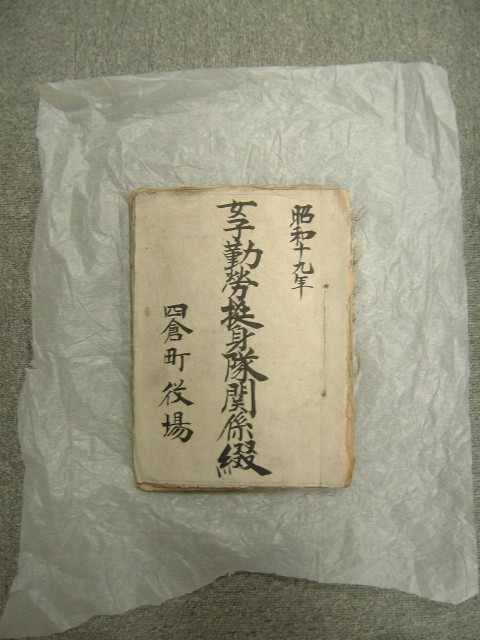 昭和十九年
女子勤勞挺身隊関係綴
四倉町役場